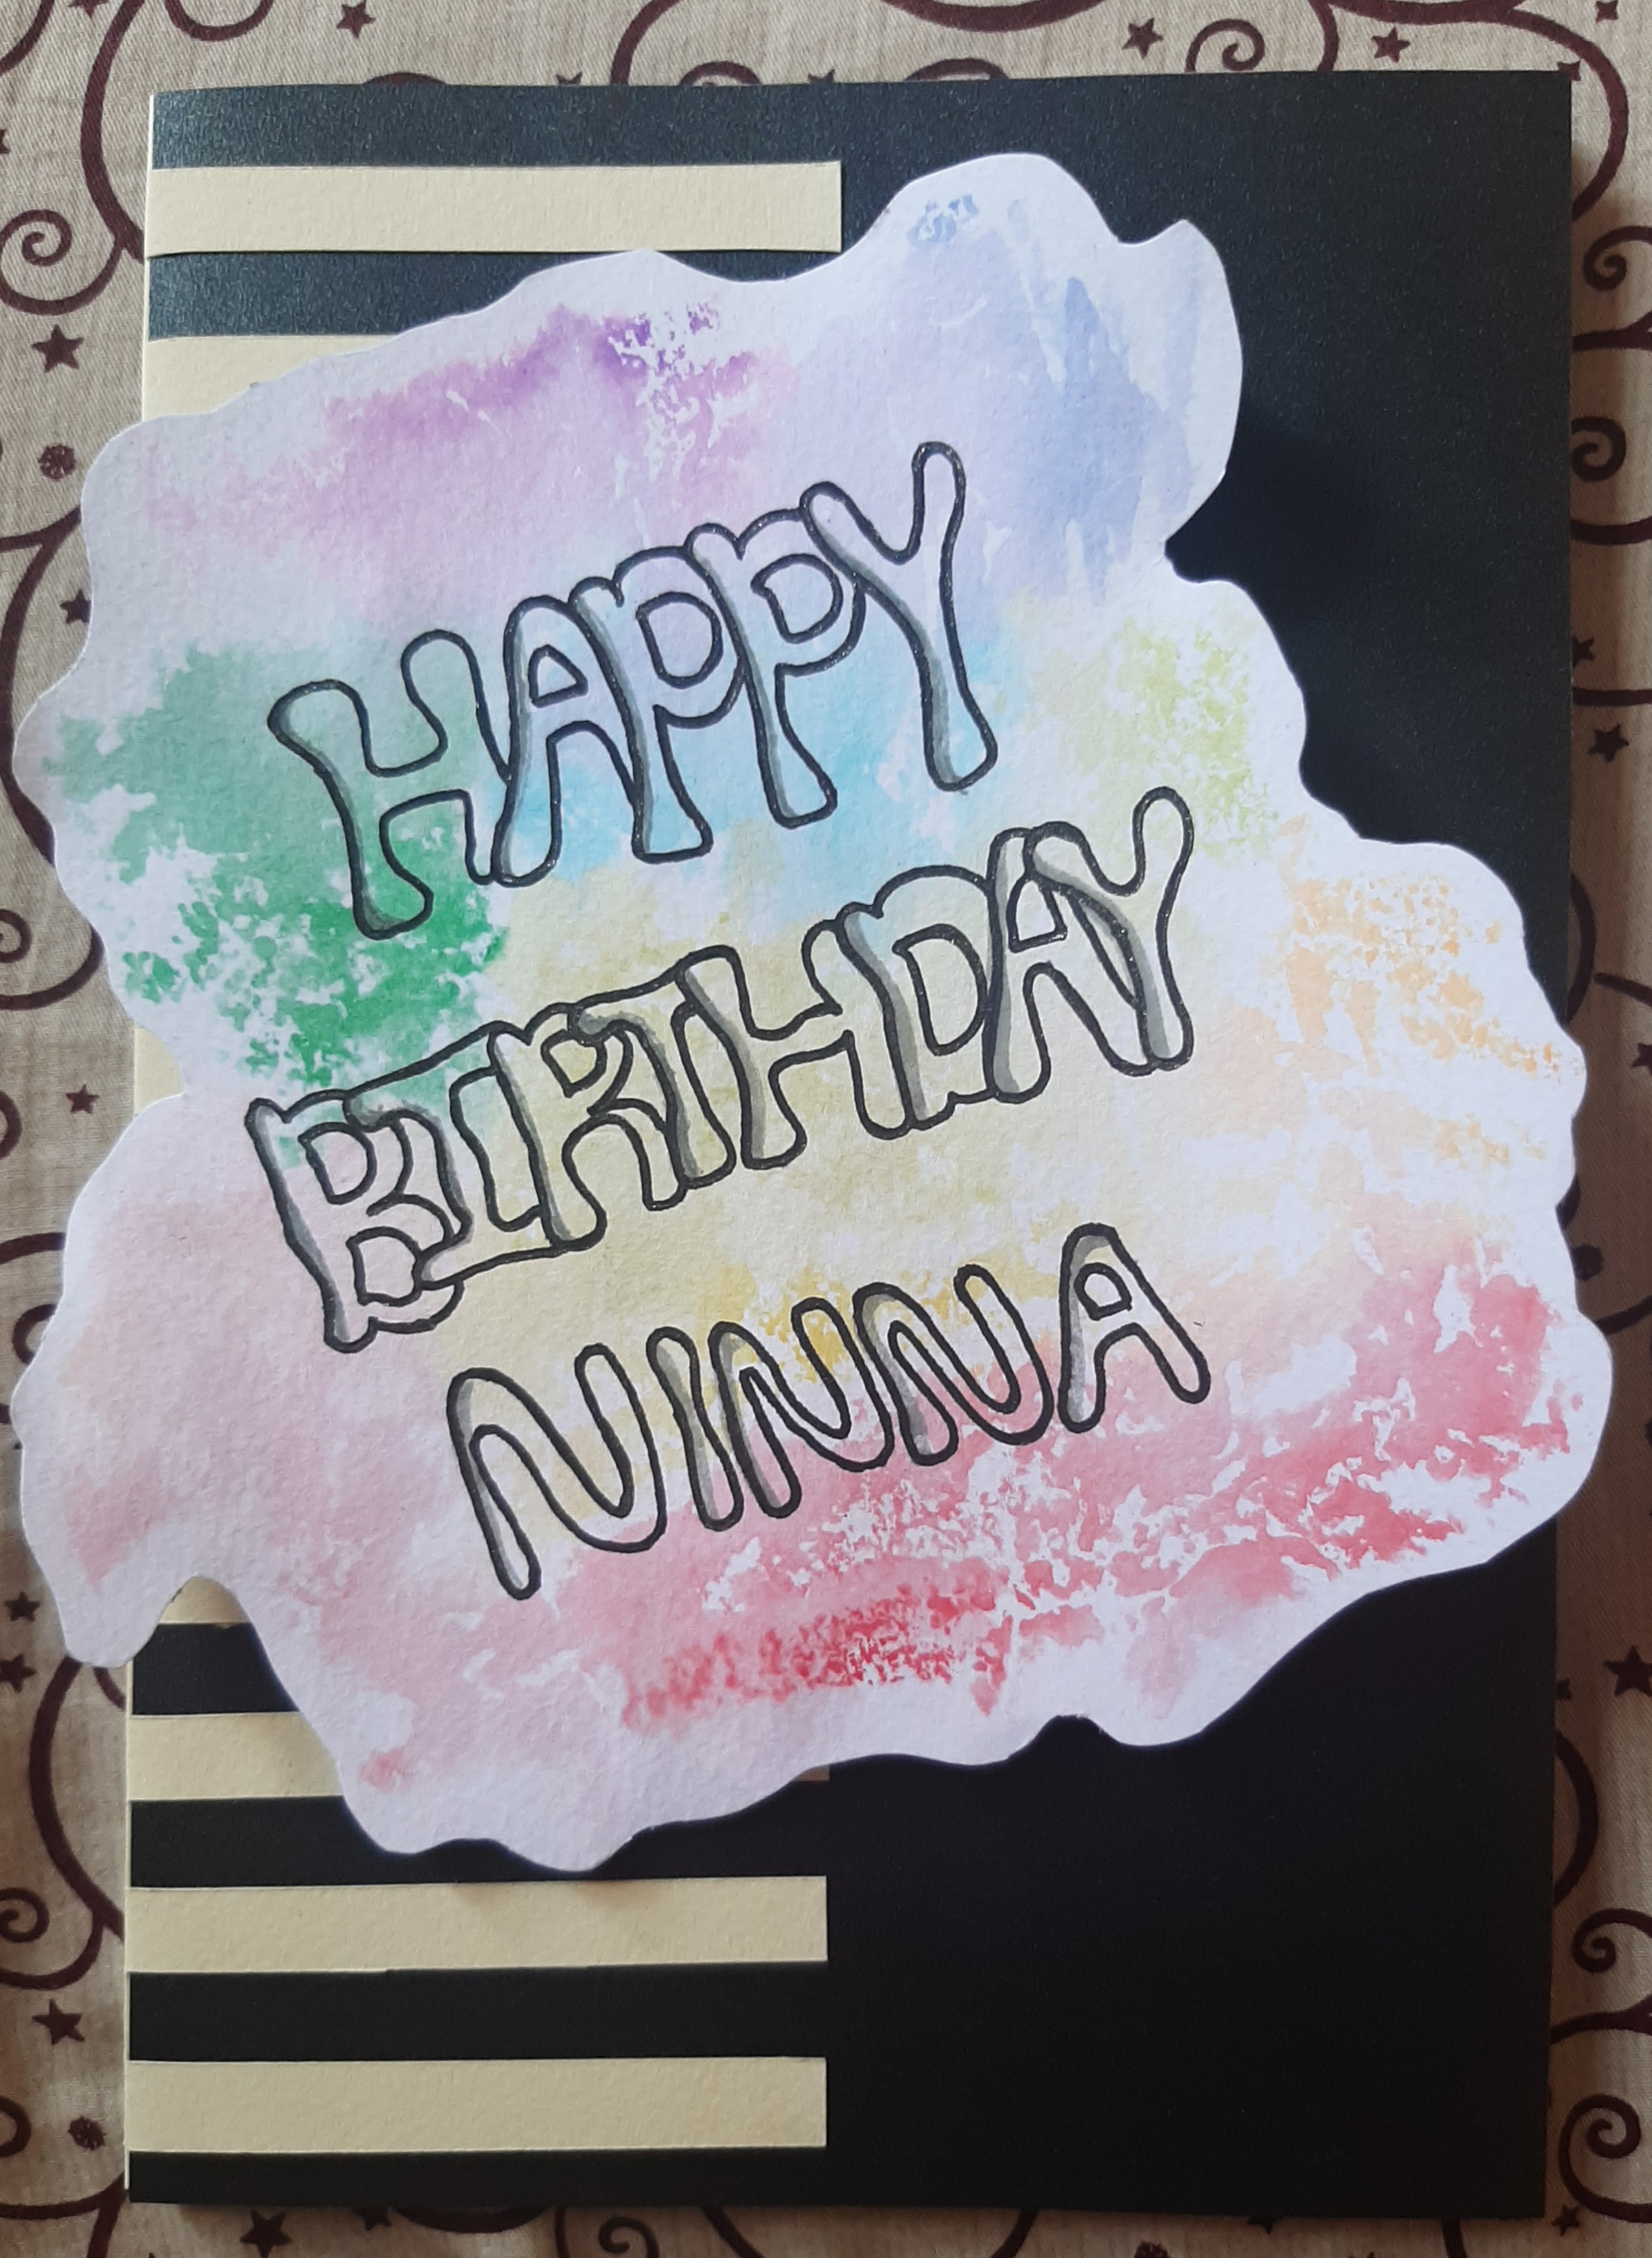 HAPPY
BIRTHDAY
NINNA